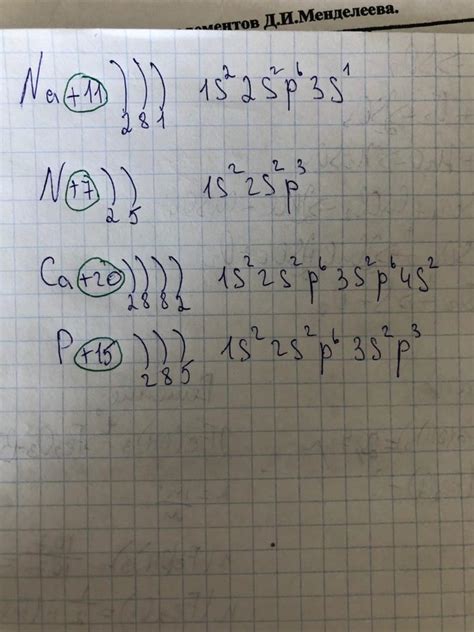 ементов Д.И.Менделеева.
Na +11 ))) 1s² 2s²p⁶ 3s¹
2 8 1
N +7 )) 1s² 2s²p³
2 5
Ca +20 )))) 1s² 2s²p⁶ 3s²p⁶ 4s²
2 8 8 2
P +15 ))) 1s² 2s²p⁶ 3s²p³
2 8 5